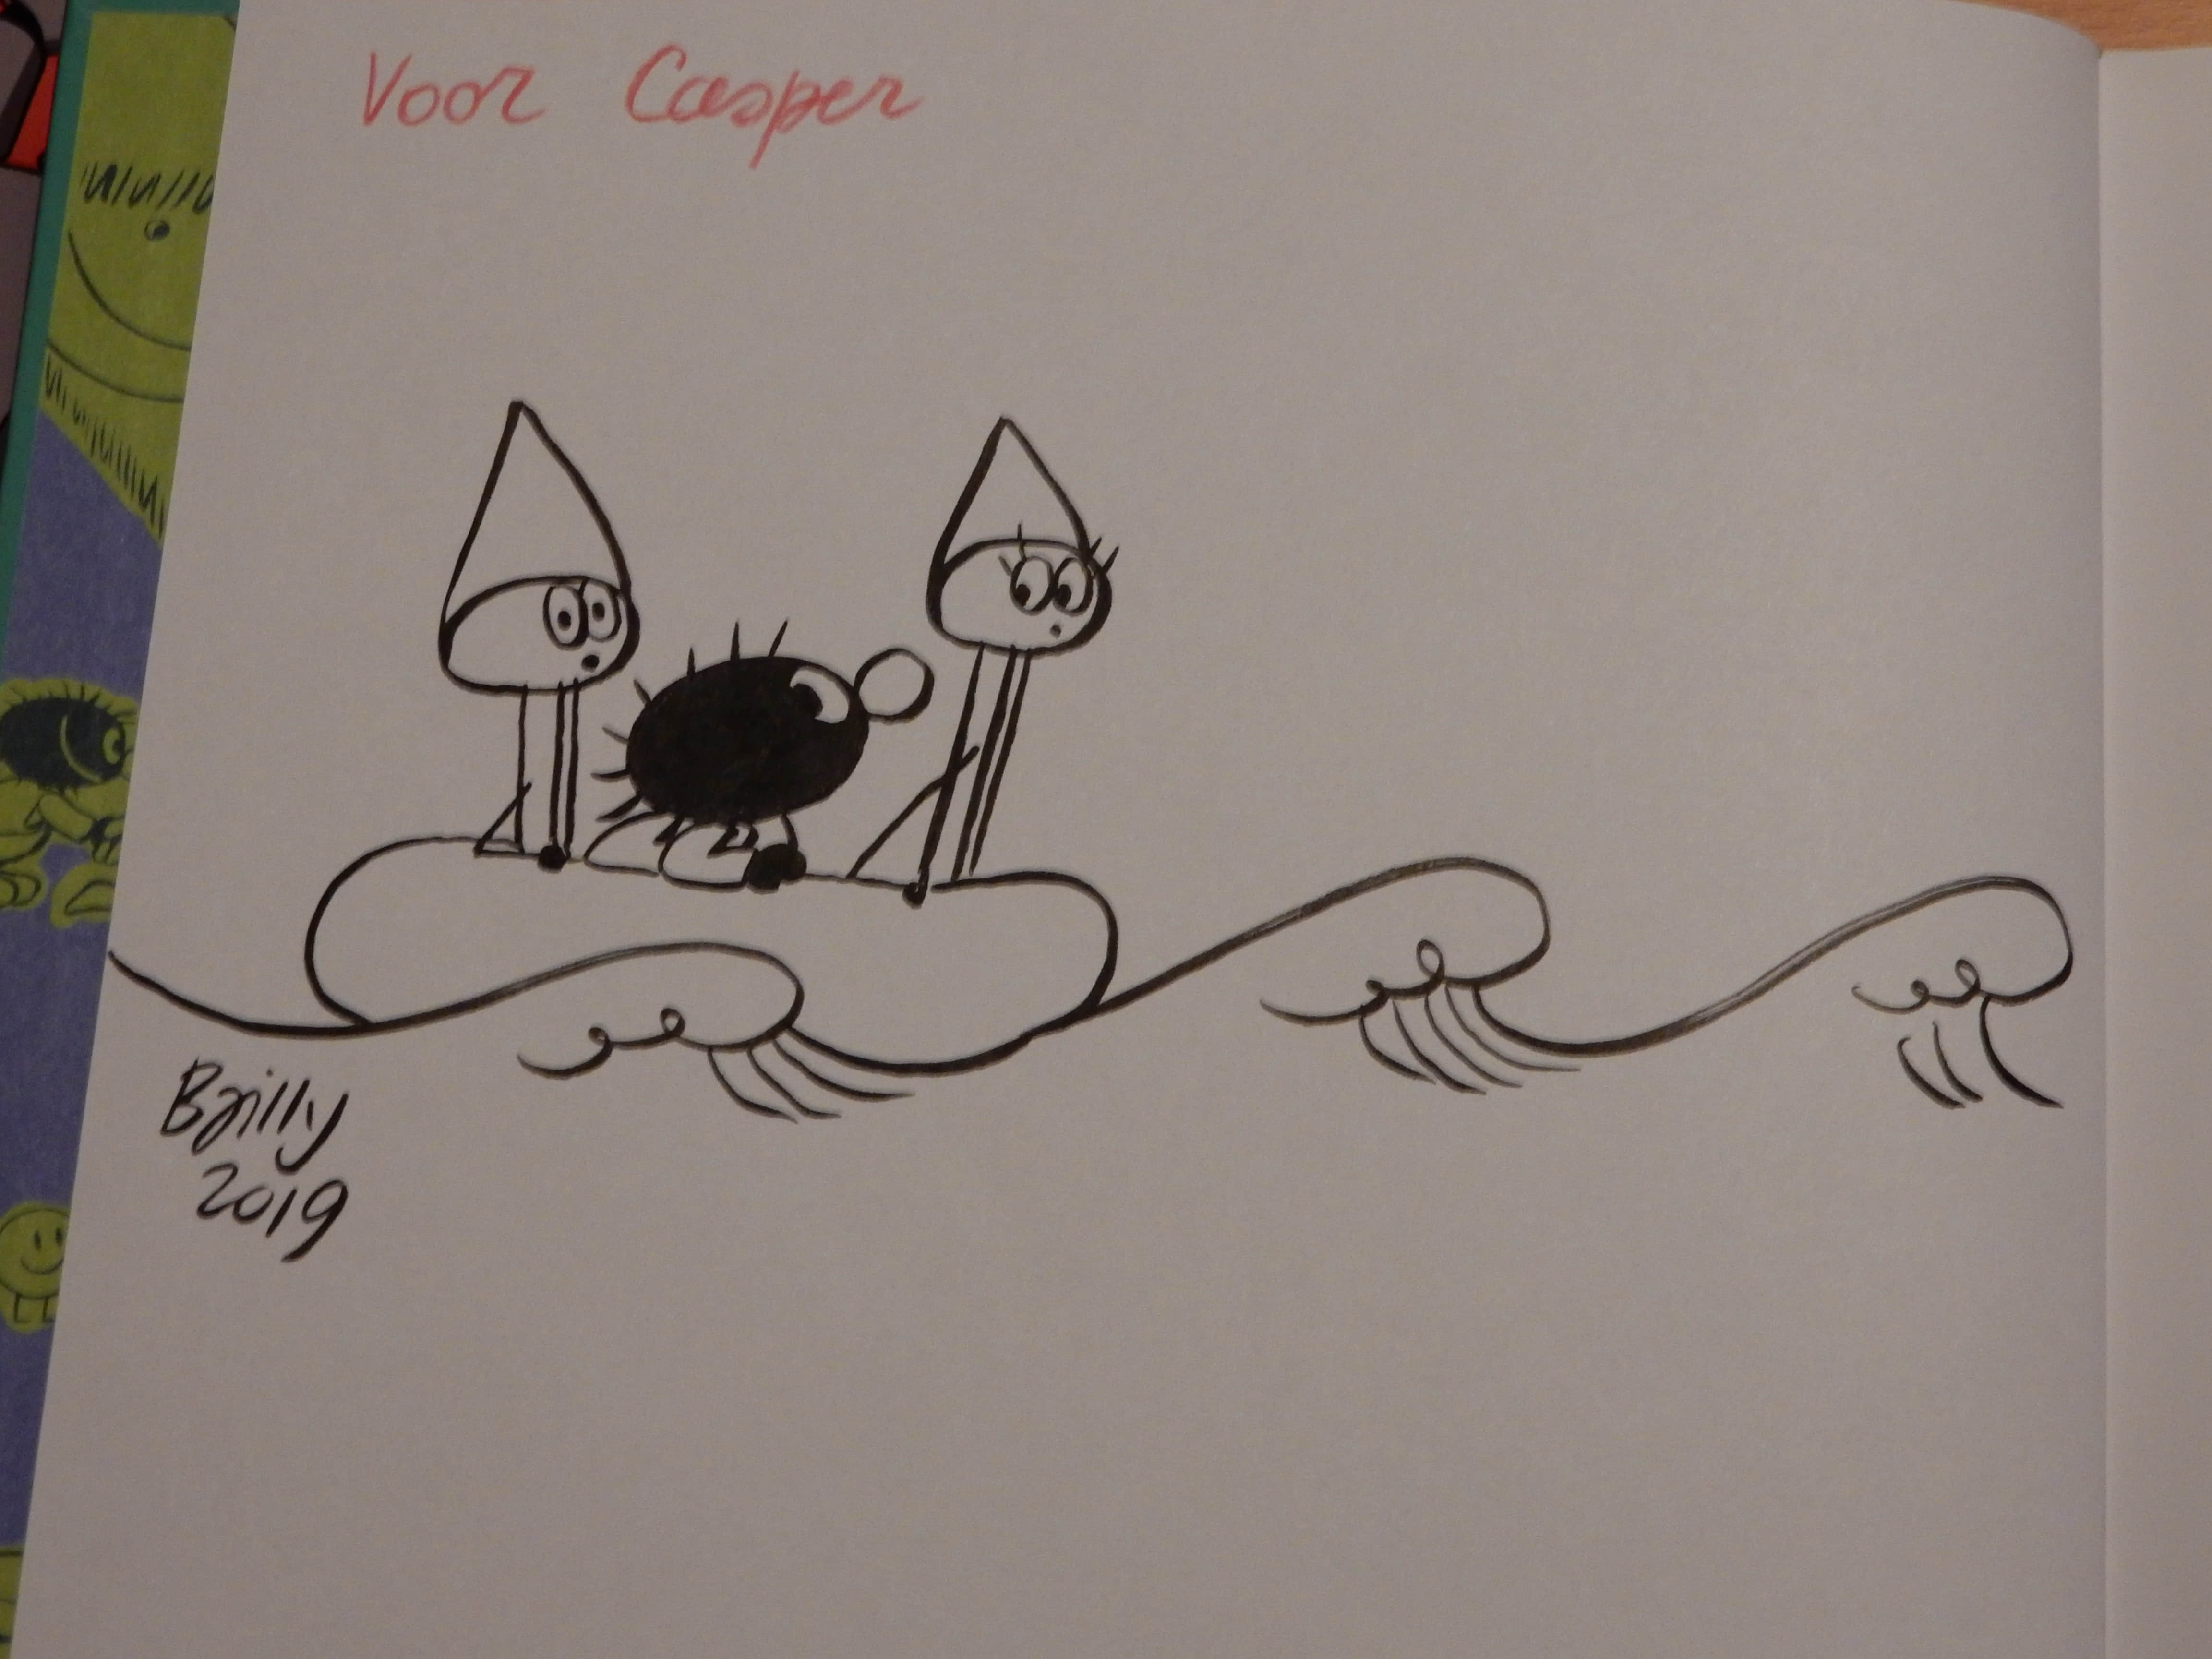 Voor Casper
Bailly
2019